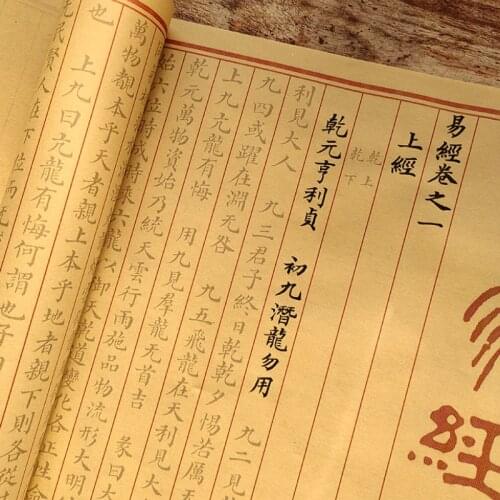 易經卷之一
上經
乾上
乾下
乾元亨利貞　初九潛龍勿用　九二見
利見大人　九三君子終日乾乾夕惕若厲无
九四或躍在淵无咎　九五飛龍在天利見大
上九亢龍有悔　用九見羣龍无首吉　彖曰大
乾元萬物資始乃統天雲行雨施品物流形大明
始六位時成時乘六龍以御天乾道變化各正性命
萬物覩本乎天者親上本乎地者親下則各從
也
上九曰亢龍有悔何謂也子
民賢人在下位而无
經